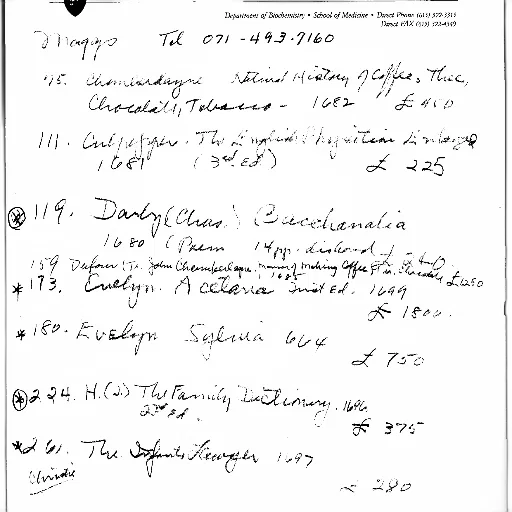 Department of Biochemistry • School of Medicine • Direct Phone (615) 322-3315
Direct FAX (615) 322-4349
Maggs Tel 071-493-7160
75. Chamberlayne Natural History of Coffee, Thee,
Chocolate, Tobacco - 1682 £ 450
111. Culpepper. The English Physitian Enlarged
1681 (3rd. Ed) £ 225
119. Darby (Chas.) Bacchanalia
1680 (Poem 14pp. disbound
159 Dufour (Tr. John Chamberlayne, Manner of Making Coffee, Tea, Chocolate £1250
1685
* 173. Evelyn. Acetaria First Ed. 1699
£ 1800.
* 180. Evelyn Sylvia 664
£ 750
* 224. H. (J.) The Family Dictionary. 1696
2nd Ed. £ 375
* 261. The Infants Lawyer 1697
£ 280